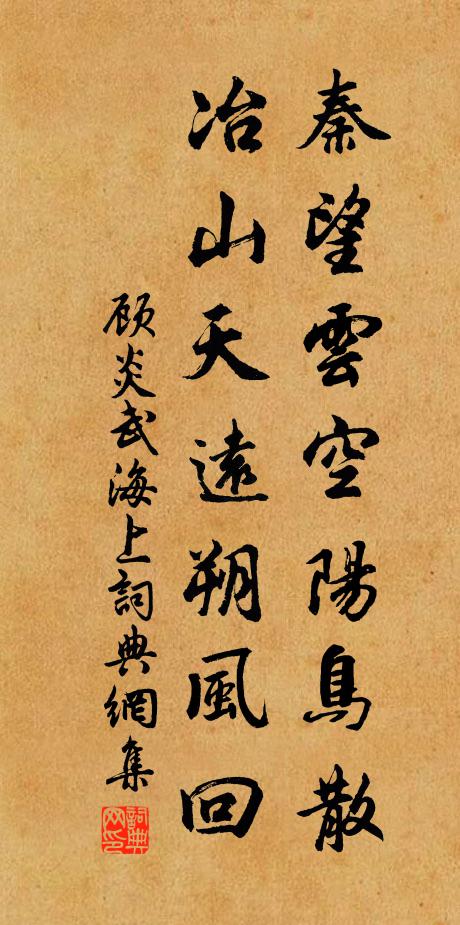 秦望雲空陽鳥散
冶山天遠朔風回
顧炎武海上詞典網集
詞典网印